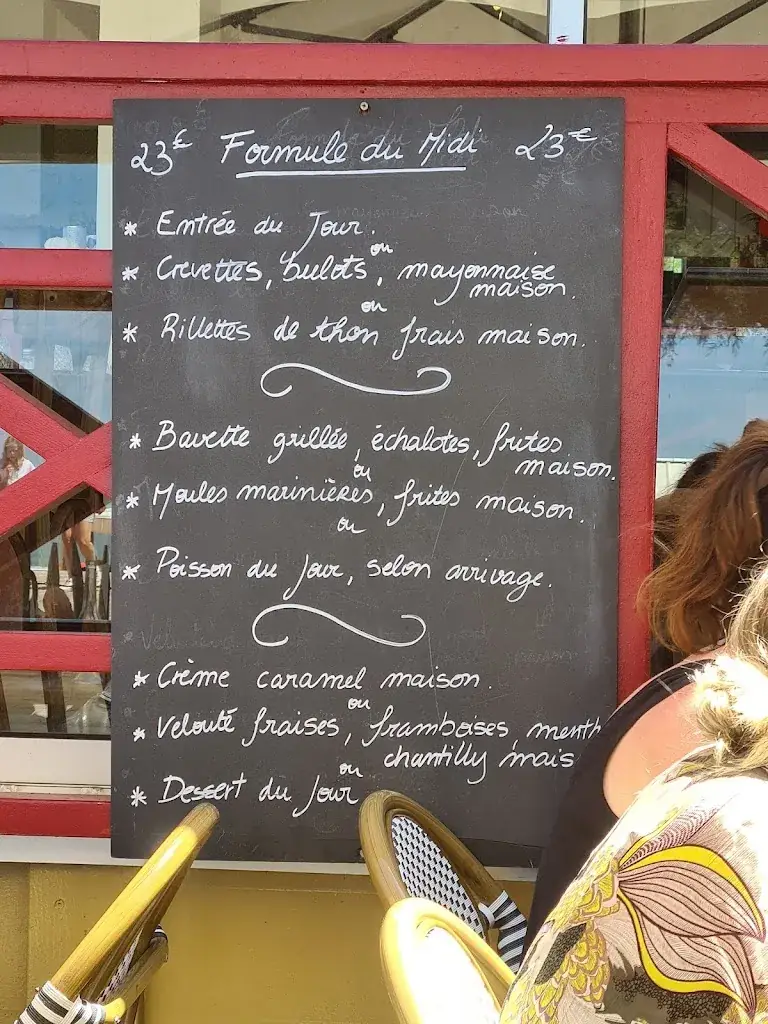 23€ Formule du Midi 23€
* Entrée du Jour.
ou
* Crevettes, bulots, mayonnaise
maison.
ou
* Rillettes de thon frais maison.
* Bavette grillée, échalotes, frites
maison.
ou
* Moules marinières, frites maison.
ou
* Poisson du Jour, selon arrivage.
* Crème caramel maison.
ou
* Velouté fraises, framboises, menth
chantilly mais
ou
* Dessert du Jour